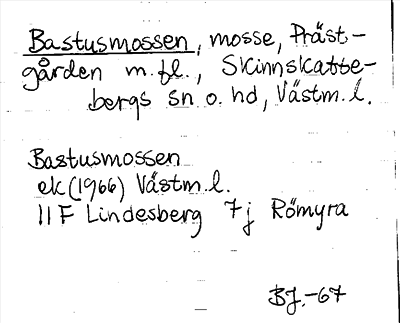 Bastusmossen, mosse, Präst-
gården m.fl., Skinnskatte-
bergs sn o. hd, Västm.l.
Bastusmossen
ek (1966) Västm.l.
11 F Lindesberg 7j Römyra
BJ.-67